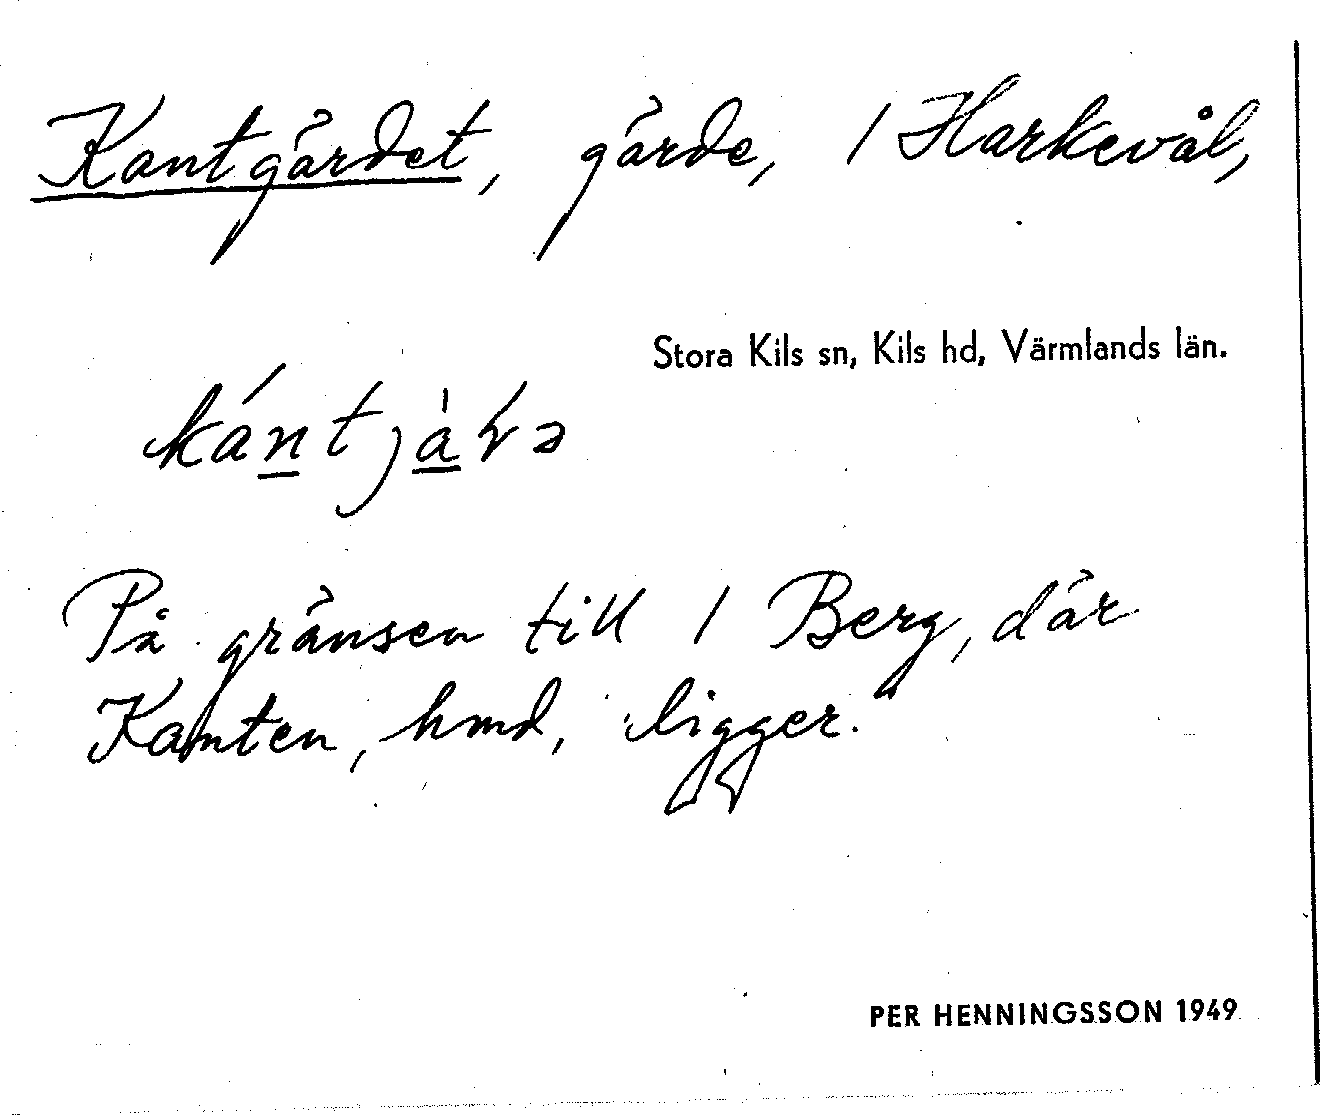 Kantgärdet, gärde, / Harkevål,
Stora Kils sn, Kils hd, Värmlands län.
På gränsen till / Berg, där
Kanten, hmd, ligger.
PER HENNINGSSON 1949